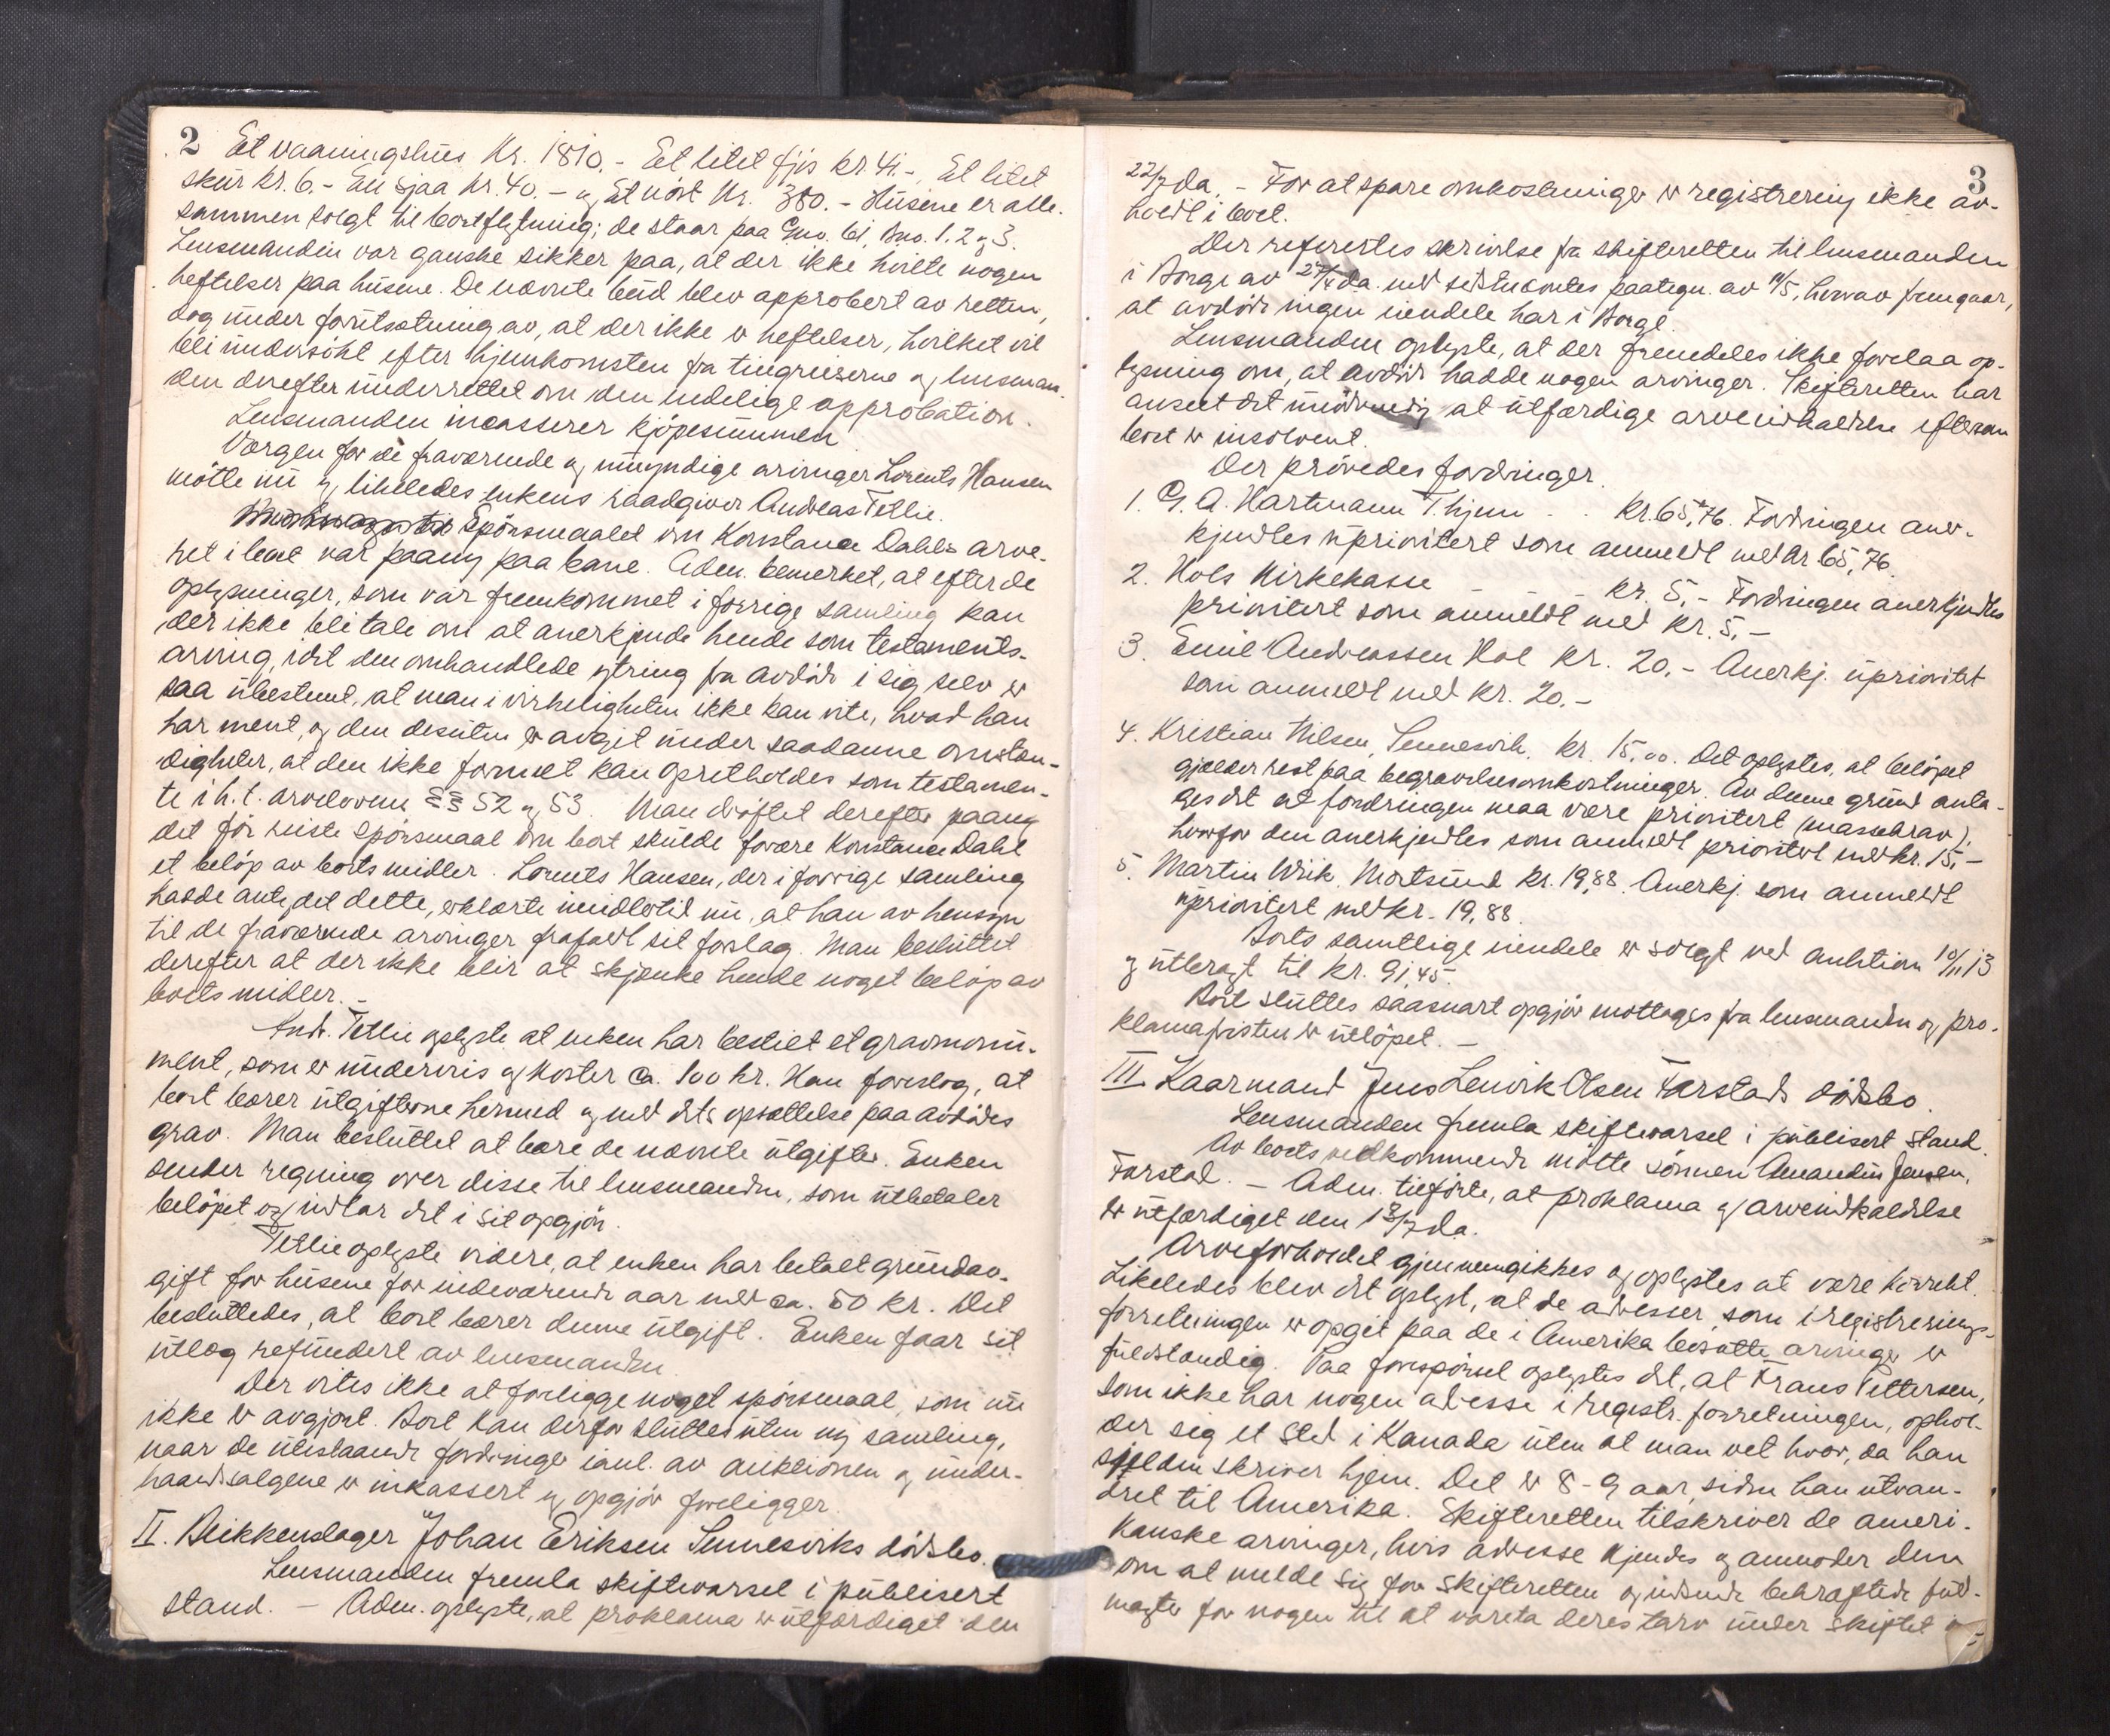 2 Et vaaningshus kr. 1810.- Eet litet fjös kr. 41.-, Et litet
skur kr. 6.- En sjaa kr. 40.- og Et nöst kr. 380.- Husene er alle-
sammen solgt til bortflytning; de staar paa Gno. 61, Bno. 1. 2 og 3.
Lensmanden var ganske sikker paa, at der ikke hvilte nogen
heftelser paa husene. De nævnte bud blev approbert av retten,
dog under forutsætning av, at der ikke er heftelser, hvilket vil
bli undersökt efter hjemkomsten fra tingreiserne og lensman-
den derefter underrettet om den endelige approbation.
Lensmanden incasserer kjöpesummen
Værgen for de fraværende og umyndige arvinger Lorents Hansen
mötte nu og likeledes enkens raadgiver Andreas Tetlie.
Spörsmaalet om Konstance Dahls arve-
ret i boet var paany paa bane. Adm. bemerket, at efter de
oplysninger, som var fremkommet i forrige samling kan
der ikke bli tale om at anerkjende hende som testaments-
arving, idet den omhandlede ytring fra avdöde i sig selv er
saa ubestemt, at man i virkeligheten ikke kan vite, hvad han
har ment, og den desuten er avgit under saadanne omstæn-
digheter, at den ikke formelt kan opretholdes som testamen-
te i h. t. arveloven §§ 52 og 53. Man dröftet derefter paany
det för reiste spörsmaal om boet skulde forære Konstance Dahl
et belöp av boets midler. Lorents Hansen, der i forrige samling
hadde antydet dette, erklærte imidlertid nu, at han av hensyn
til de fraværende arvinger frafaldt sit forslag. Man besluttet
derefter at der ikke blir at skjænke hende noget belöp av
boets midler. -
Andr. Tetlie oplyste at enken har bestilt et gravmonu-
ment, som er underveis og koster ca. 100 kr. Han foreslog, at
boet bærer utgifterne hermed og med dets opsættelse paa avdödes
grav. Man besluttet at bære de nævnte utgifter. Enken
sender regning over disse til lensmanden, som utbetaler
belöpet og indtar det i sit opgjör.
Tetlie oplyste videre, at enken har betalt grundav-
gift for husene for indeværende aar med ca. 50 kr. Det
besluttedes, at boet bærer denne utgift. Enken faar sit
utlæg refundert av lensmanden
Der vites ikke at foreligge noget spörsmaal, som nu
ikke er avgjort. Boet kan derfor sluttes uten ny samling,
naar de utestaaende fordringer ianl. av auktionen og under-
haandsalgene er inkassert og opgjör foreligger.
II. Blikkenslager Johan Eriksen Sennesviks dödsbo.
Lensmanden fremla skiftevarsel i publisert
stand. - Adm. oplyste, at proklama er utfærdiget den
3
22/7 da. - For at spare omkostninger er registrering ikke av-
holdt i boet.
Der referertes skrivelse fra skifteretten til lensmanden
i Borge av 27/4 da. med sidstnævntes paategn. av 11/5, hvorav fremgaar,
at avdöde ingen eiendele har i Borge.
Lensmanden oplyste, at der fremdeles ikke forelaa op-
lysning om, at avdöde hadde nogen arvinger. Skifteretten har
anseet det unödvendig at utfærdige arveindkaldelse eftersom
boet er insolvent.
Der prövedes fordringer.
1. G. A. Hartmann Thjem - . kr. 65,76. Fordringen aner-
kjendtes uprioritert som anmeldt med kr. 65,76.
2. Hols Kirkekasse - - kr. 5.- Fordringen anerkjendtes
prioritert som anmeldt med kr. 5.-
3. Emil Andreassen Hol kr. 20.- Anerkj. uprioritet
som anmeldt med kr. 20.-
4. Kristian Nilsen, Sennesvik. kr. 15,00. Det oplystes, at belöpet
gjælder rest paa begravelsesomkostninger. Av denne grund anta-
ges det at fordringen maa være prioritert (massekrav),
hvorfor den anerkjendtes som anmeldt prioritert med kr. 15,-
5. Martin Wiik, Mortsund kr. 19,88. Anerkj. som anmeldt
uprioritert med kr. 19,88.
Boets samtlige eiendele er solgt ved auktion 10/11 13
og utbragt til kr. 91,45.
Boet sluttes saasnart opgjör mottages fra lensmanden og pro-
klamafristen er utlöpet. -
III. Kaarmand Jens Lenvik Olsen Farstads dödsbo.
Lensmanden fremla skiftevarsel i publisert stand.
Av boets vedkommende mötte sönnen Amandus Jensen,
Farstad. - Adm. tilförte, at proklama og arveindkaldelse
er utfærdiget den 13/7 da.
Arveforholdet gjennemgikkes og oplystes at være korrekt.
Likeledes blev det oplyst, at de adresser, som i registrerings-
forretningen er opgit paa de i Amerika bosatte arvinger er
fuldstændig. Paa forespörsel oplystes det, at Frans Pettersen,
som ikke har nogen adresse i registr. forretningen, ophol-
der sig et sted i Kanada uten at man vet hvor, da han
sjelden skriver hjem. Det er 8-9 aar, siden han utvan-
dret til Amerika. Skifteretten tilskriver de ameri-
kanske arvinger, hvis adresse kjendes og anmoder dem
om at melde sig for skifteretten og indsende bekræftede fuld-
magter for nogen til at vareta deres tarv under skiftet